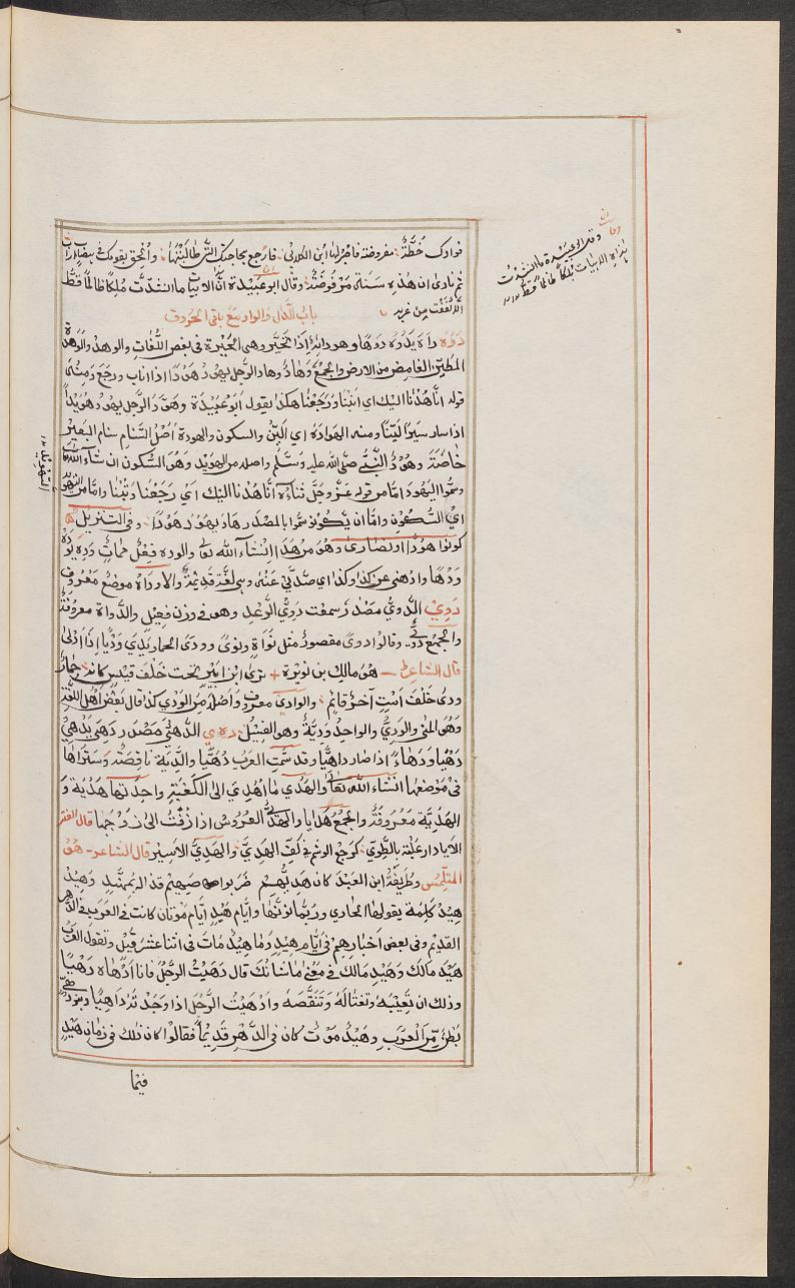 فوادك خُطَّةٌ مفروضة ابن الكردنى فارجع بحاجتك التى طالبتها وأنحق بقومك فى
ثم نادى ان هذه سَنة مَرْفُوضَة وقال ابو عبيدة انّ الابيات ما انشدت مُلِكًا ظالمًا قطُّ
الّا كففت من غربه
باب الدال والواو مع باقى الحروف
دوه داه يَدُوه دوهًا وهو دائهٌ اذا تحيّر وهى الحيرة فى بعض اللغات والوهد والوهدة
المطمئن الغامض من الارض والجمع وهادٌ وهاد الرجل يهود هودًا اذا اناب ورجع ومنه
قوله انّا هُدنا اليك اى انبنا ورجعنا هكذا يقول ابو عبيدة وهوّد الرجل يهوّد تهويدًا
اذا سار سيرًا ليّنًا ومنه الهوادة اى اللين والسكون والهودة اصل السّنام سنام البعير
خاصّة وهودٌ النبى صلى الله عليه وسلم واصله من الهويد وهو السكون ان شاء الله
وسمّوا اليهود امّا من قوله عزّ وجلّ ثناؤه انّا هدنا اليك اى رجعنا وتبنا وامّا من التهويد
اى السكون وامّا ان يكونو سمّوا بالمصدر هاد يهود هودًا وفى التنزيل
كونوا هودًا او نصارى وهو من هذا انشاء الله تعا والوده فعل ممات وَدِهَ يَوْدَه
وَدْهًا واودهنى عن كذا وكذا اى صدّنى عنه وهى لغة قديمة والاوداه موضع معروف
دوي الدَّويّ مصدر سمعت دَوِيّ الرعد وهو فى وزن فعيل والدواة معروفة
والجمع دُوِيّ وقالوا دوىً مقصورٌ مثل نواة ونوىً وودى الحمار يَدِي وَدْيًا اذا ادلى
قال الشاعر هو مالك بن نويرة ترى ابن ابير تحت خلف قيس كانه حمار
ودى خلف است آخر قائم والوادى معروف واصله من الودي كذا قال بعض اهل اللغة
وهو المنى والوديّ والواحد وديّة وهو الفسيل دهى الدهى مصدر دهى يدهى
دهيًا ودهاءً اذا صار داهيًا وقد سمّت العرب دُهَيًّا والدية ناقصة وستراها
فى موضعها انشاء الله تعا والهدي ما اهدي الى الكعبة واحدتها هَدْية و
الهديّة معروفة والجمع هدايا والهديّ العروس اذا زُفّت الى زوجها قال الشاعر
الا يا دار عبلة بالطوىّ كرجع الوشم فى كفّ الهديّ والهديّ الاسير قال الشاعر هو
المتلمّس وطريفة ابن العبد كان هديّهم ضربوا صميم قذاله بمهنّد وهَيْد
هيد كلمة يقولها الحادى وربّما نوّنها وايام هيد ايام موتان كانت فى العرب فى الدهر
القديم وفى بعض اخبارهم فى ايام هيد وما هيد مات فى اثنا عشر قيل وتقول العرب
هَيْد مالك وهيد مالك فى معنى ما شانك قال دهيت الرجل فانا ادهاه دهيًا
وذلك ان تعيبه وتغتاله وتنقّصه وادهيت الرجل اذا وجدته داهيًا وبنو دهى
بطن من العرب وهيد موت كان فى الدهر قديمًا فقالوا كان ذلك فى زمان هيد
فيما
التهويد
وقال ابو عبيدة ما انشدت
هذه الابيات مُلِكًا ظالمًا قط